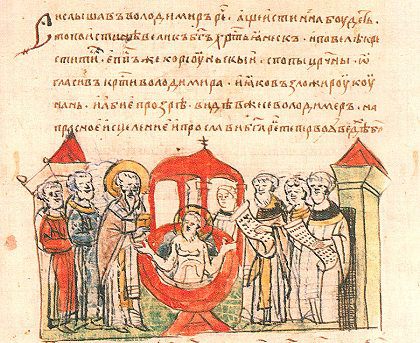 И слышавъ володимиръ ре. аще и истинна боудеть
то поистинѣ великъ бъ хртьꙗнескъ. и повелѣ кре
стити. епⷭпъ же корсоуньскыи. с попы црчны. ѡ
гласивъ крти володимира. и ꙗко възложи роукоу
на нь. и абие прозрѣ. видѣвже се володимеръ. на
прасное исцеление и прослави бга ре то первое